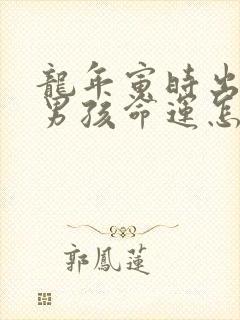 龍年寅時出
男孩命運怎
郭鳳蓮